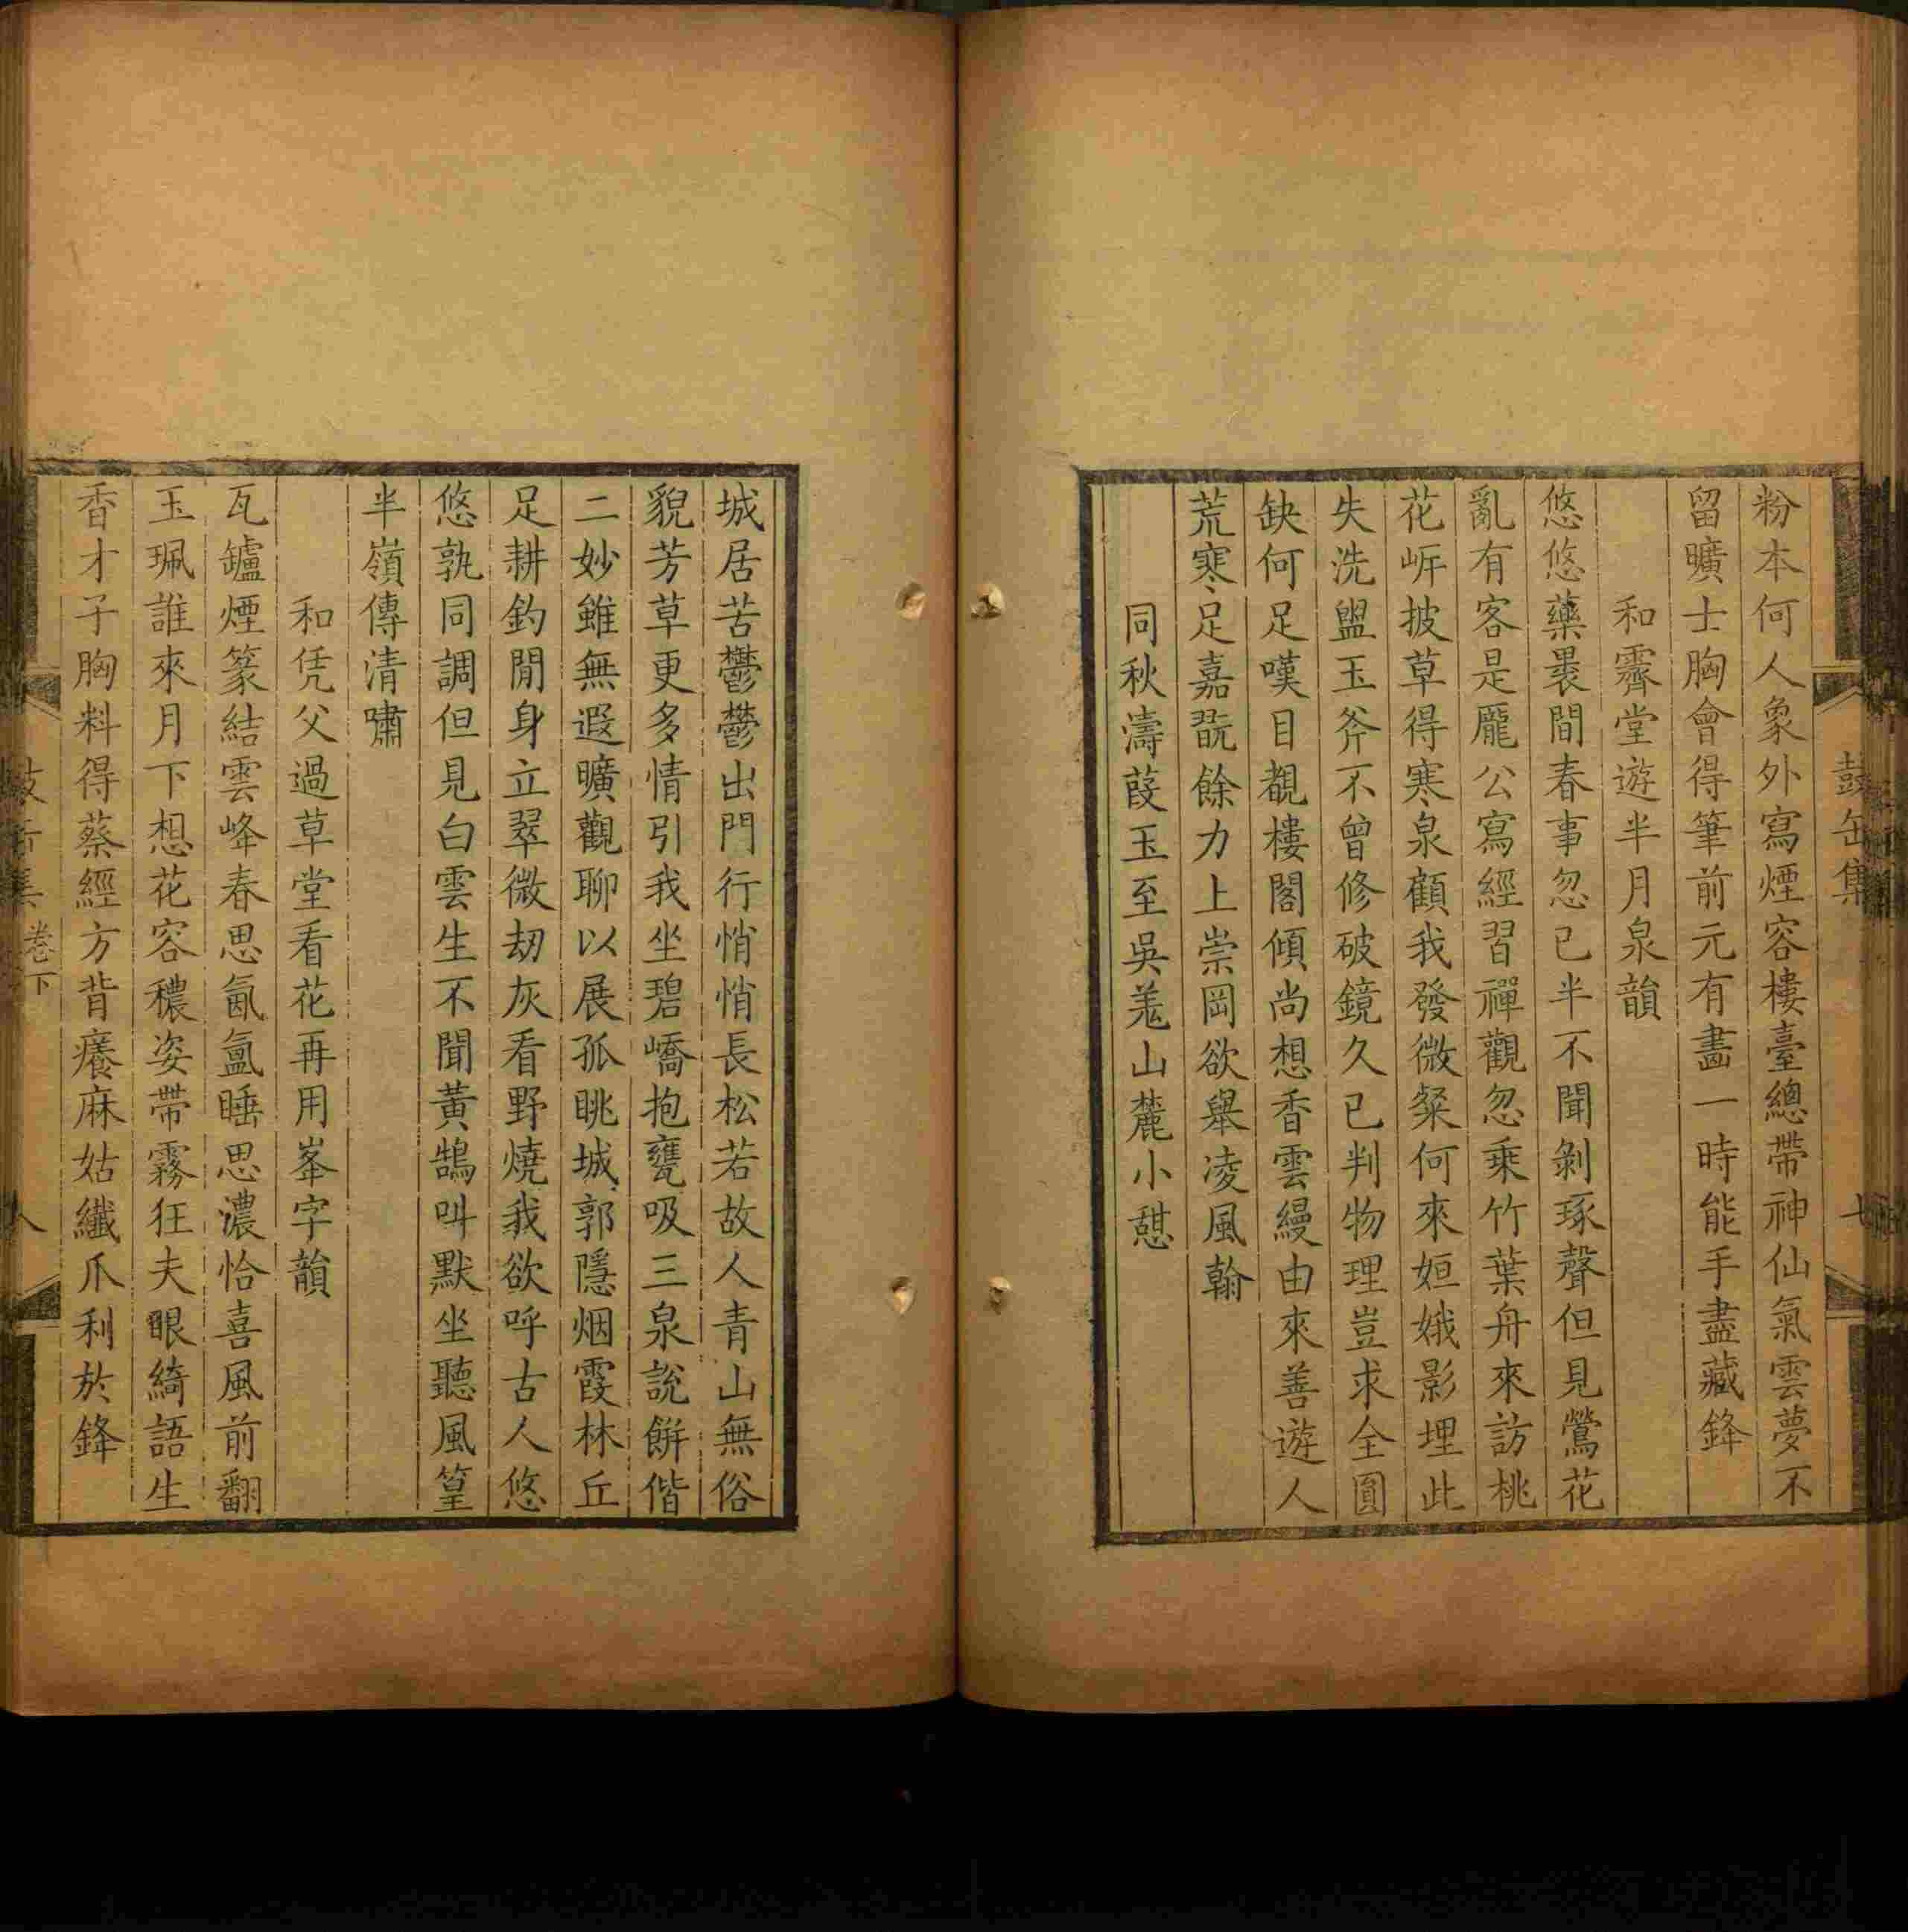 鼓缶集
七
粉本何人象外寫煙容樓臺總帶神仙氣雲夢不
留曠士胸會得筆前元有畵一時能手盡藏鋒
和霽堂遊半月泉韻
悠悠藥裹間春事忽已半不聞剝琢聲但見鶯花
亂有客是龐公寫經習禪觀忽乘竹葉舟來訪桃
花㟁披草得寒泉顧我發微粲何來姮娥影埋此
失洗盥玉斧不曾修破鏡久已判物理豈求全圓
缺何足嘆目覩樓閣傾尚想香雲縵由來善遊人
荒寒足嘉翫餘力上崇岡欲舉凌風翰
同秋濤葭玉至吳羗山麓小憇
城居苦鬱鬱出門行悄悄長松若故人青山無俗
貌芳草更多情引我坐碧嶠抱甕吸三泉說餅偕
二妙雖無遐曠觀聊以展孤眺城郭隱烟霞林丘
足耕釣閒身立翠微刧灰看野燒我欲呼古人悠
悠孰同調但見白雲生不聞黃鵠叫默坐聽風篁
半嶺傳清嘯
和凭父過草堂看花再用峯字韻
瓦鑪煙篆結雲峰春思氤氳睡思濃恰喜風前翻
玉珮誰來月下想花容穠姿帶霧狂夫眼綺語生
香才子胸料得蔡經方背癢麻姑纖爪利於鋒
卷下
八